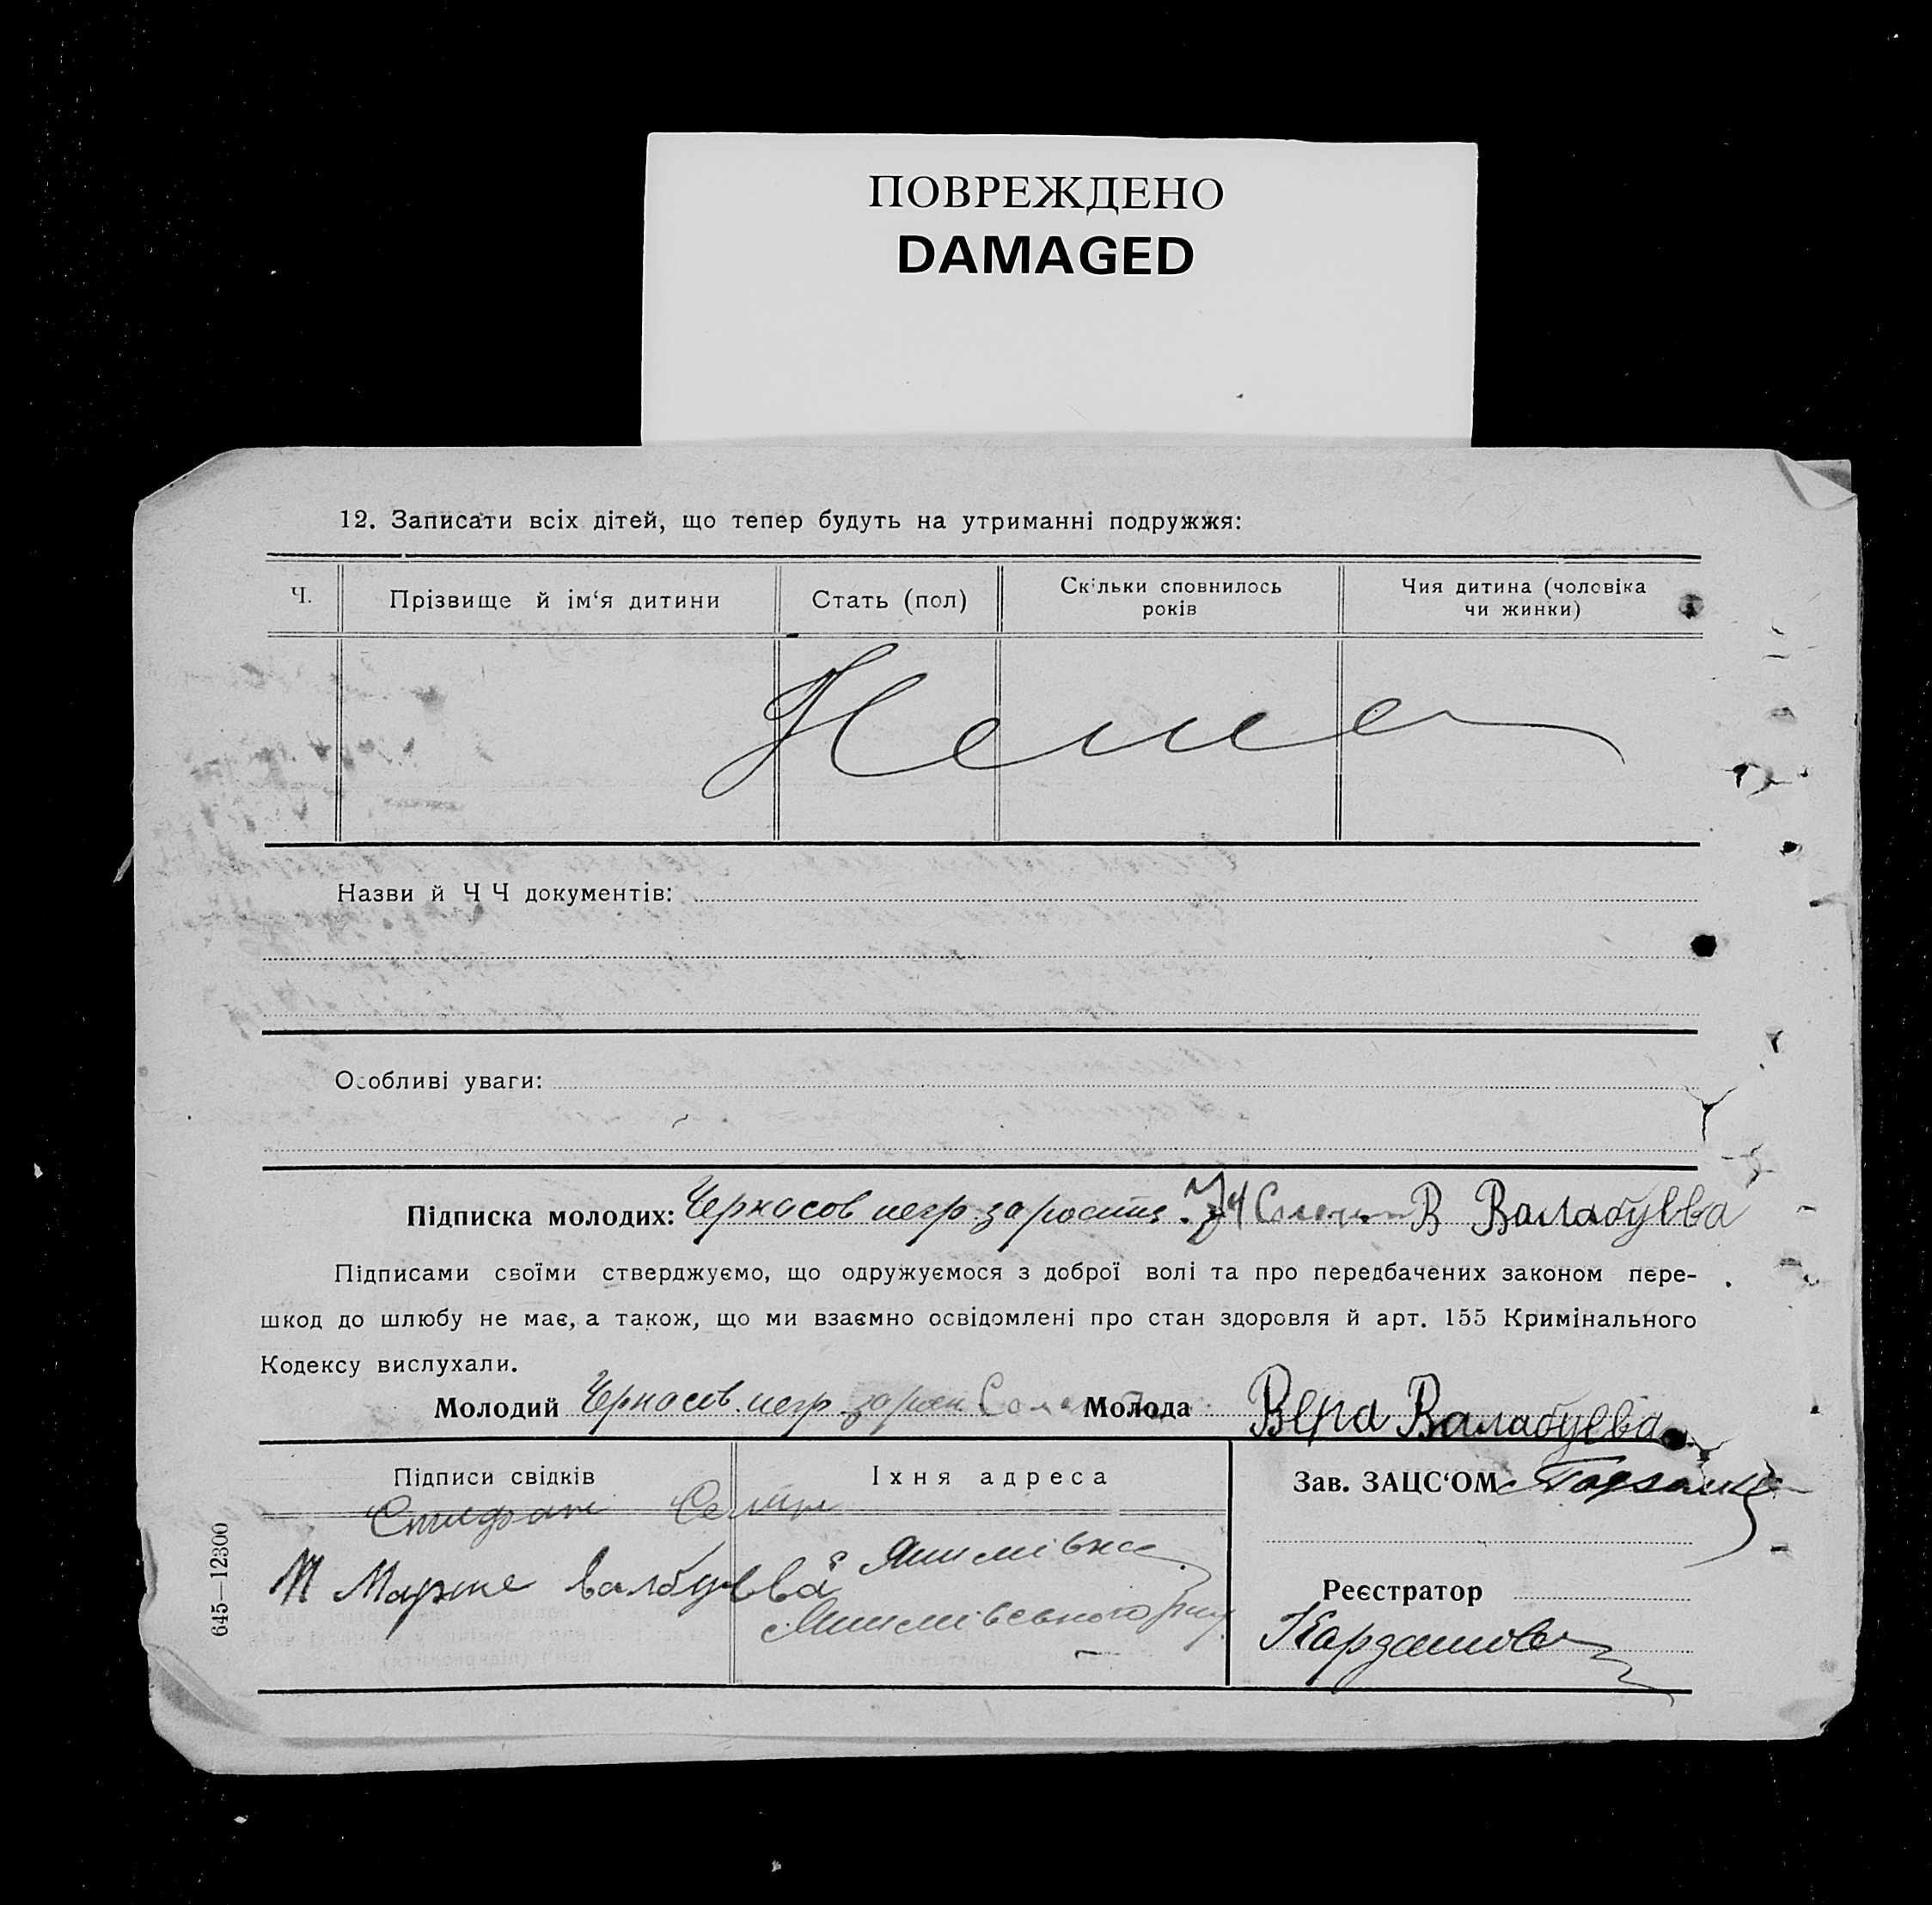 ПОВРЕЖДЕНО
DAMAGED
12. Записати всіх дітей, що тепер будуть на утриманні подружжя:
Ч.
Прізвище й ім‘я дитини
Стать (пол)
Скільки сповнилось
років
Чия дитина (чоловіка
чи жинки)
Немає
Назви й Ч Ч документів:
Особливі уваги:
Підписка молодих: Черкасов негр за росписа В Валабуева
Підписами своїми стверджуємо, що одружуємося з доброї волі та про передбачених законом пере-
шкод до шлюбу не має, а також, що ми взаємно освідомлені про стан здоровля й арт. 155 Кримінального
Кодексу вислухали.
Молодий Черкасов негр Молода Вера Валабуева
Підписи свідків
Їхня адреса
Зав. ЗАЦС‘ОМ
Реєстратор
645—12300